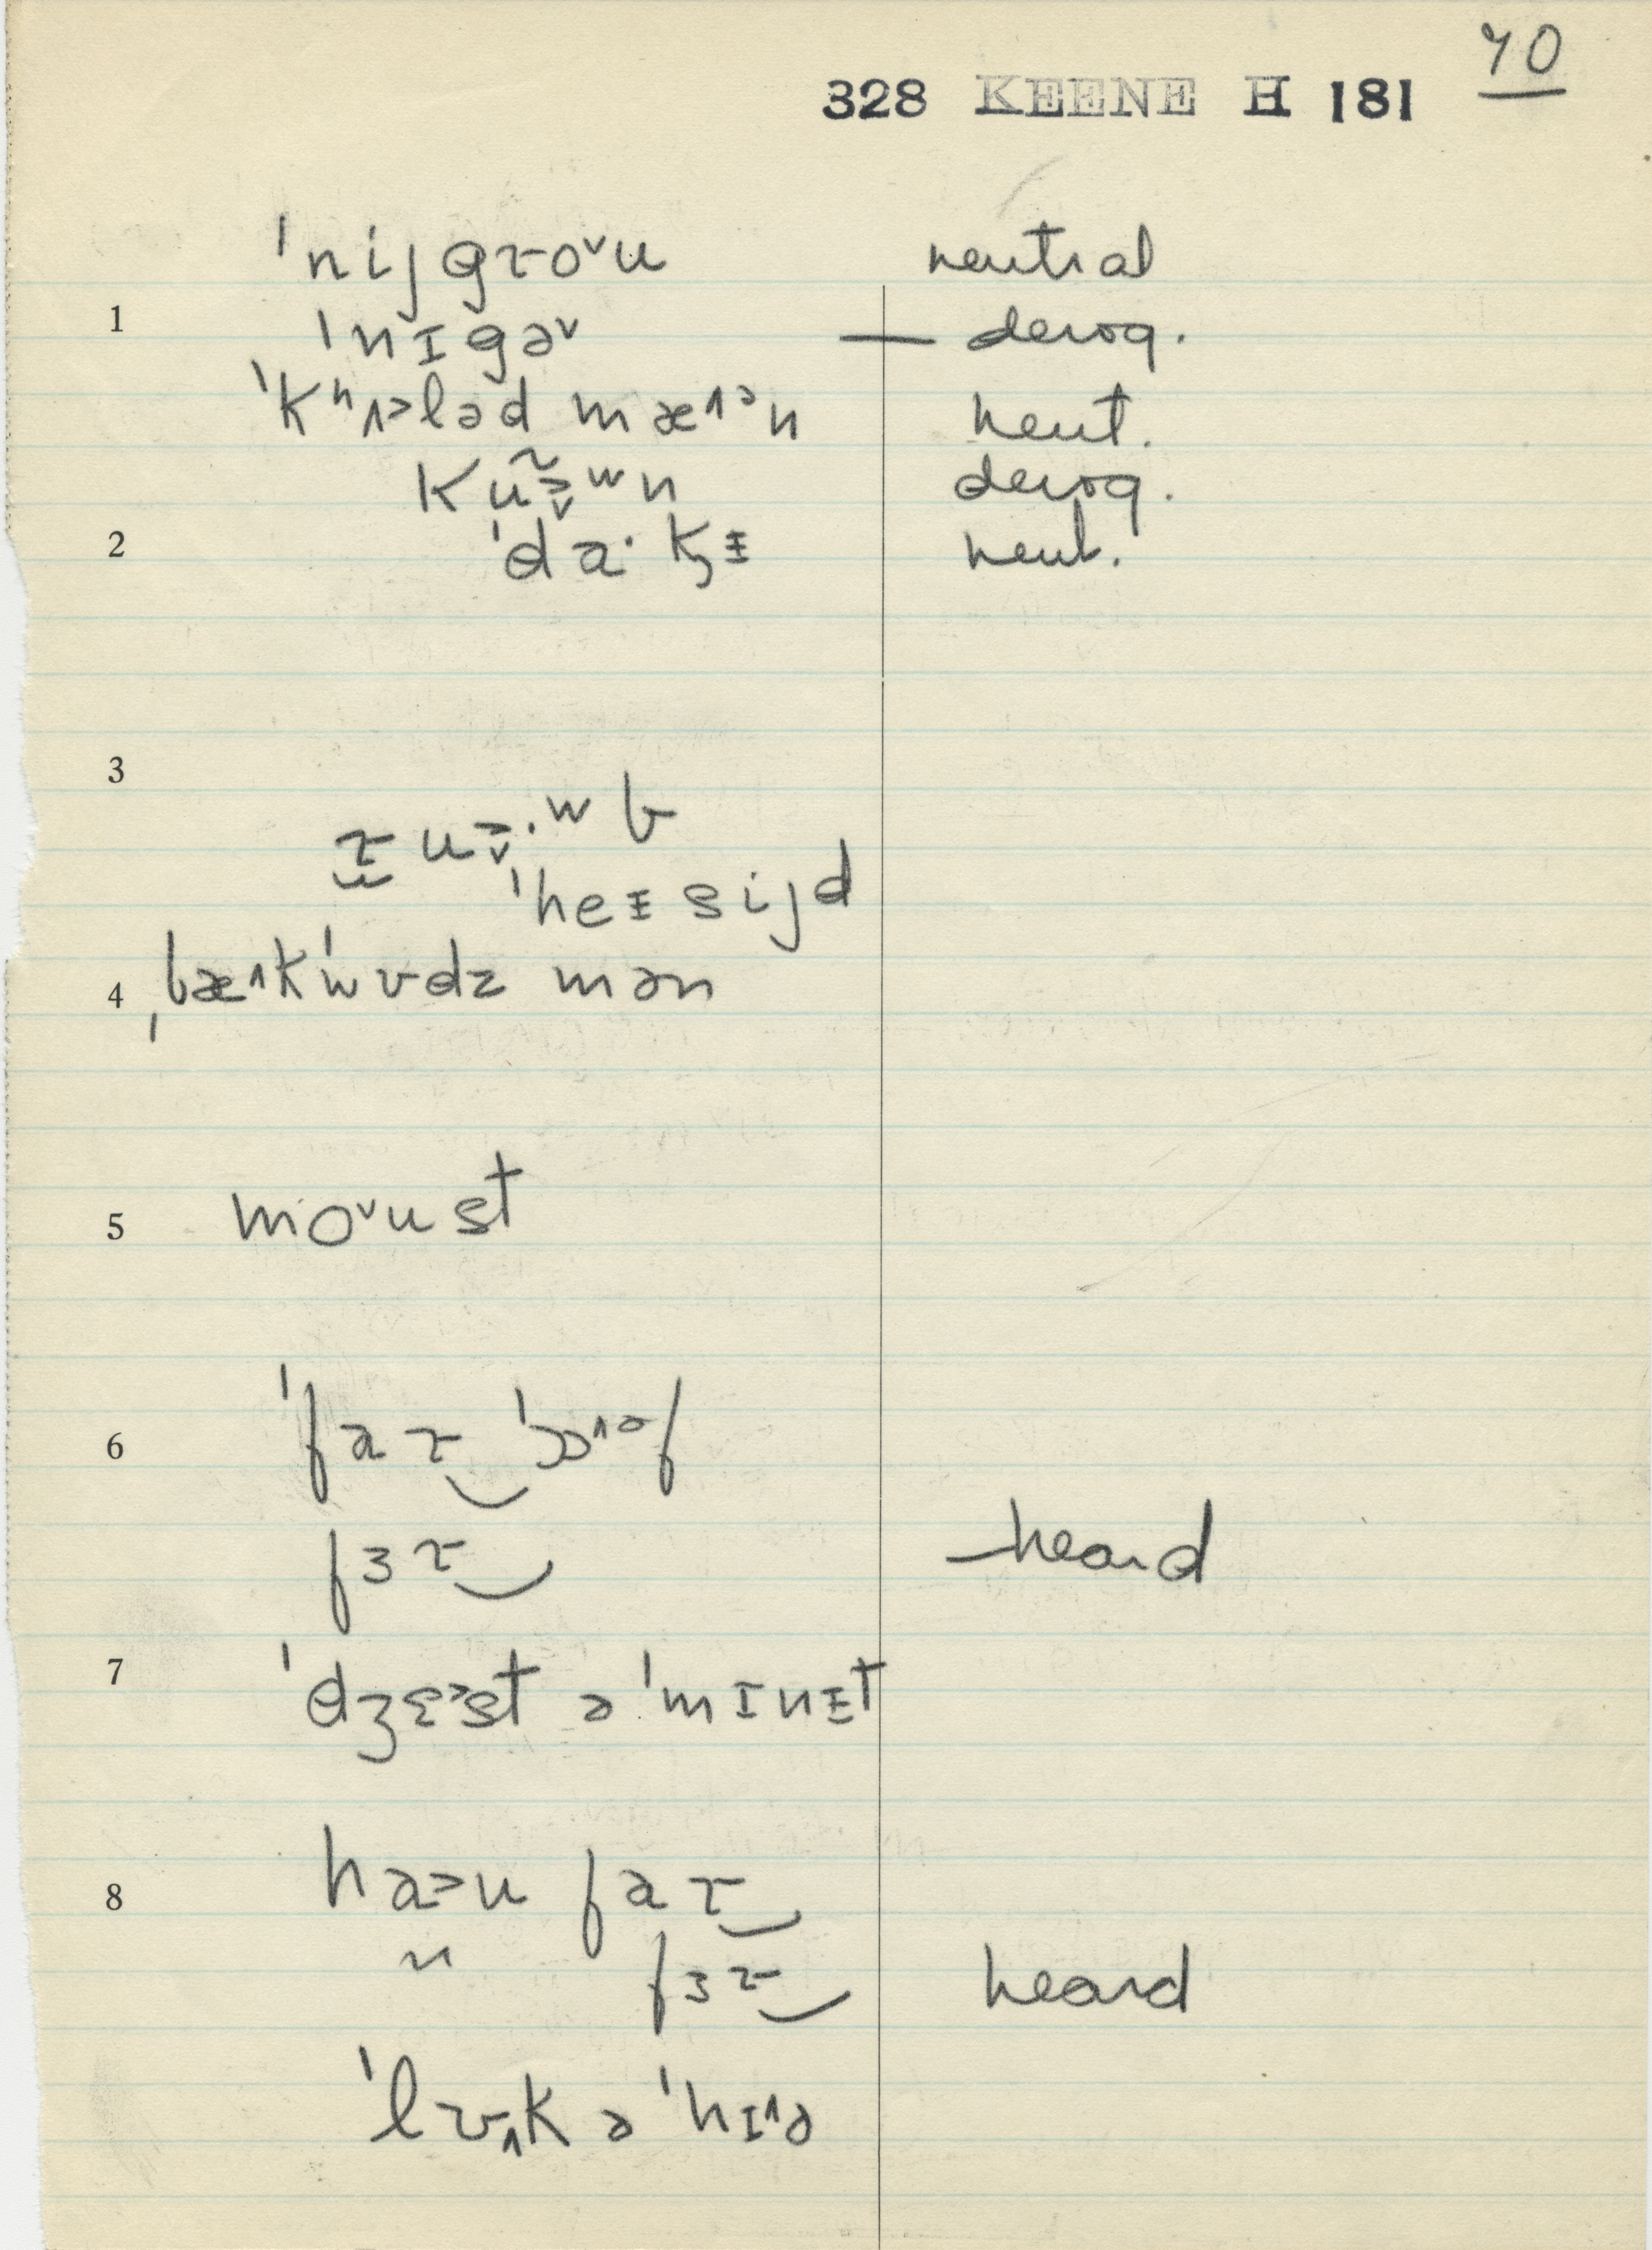 70
328 KEENE H 181
ˈnijgɾoᵛu neutral
1 ˈnɪgəᵛ — derog.
ˈkʰʌ˃ləd mæ^ᵊn neut.
kuw̃n derog.
2 ˈda·kɪ neut.
3
ɾu·ʷb
ˈheɪsijd
4 ˌbækˈwɒdz mən
5 moᵛust
6 ˈfaɾ‿ˈɒ^ᵊf
fɜɾ‿ — heard
7 ˈdʒɛ˃st ə ˈmɪnɪt
8 ha˃u faɾ‿
〃 fɜɾ‿ heard
ˈlʊk ə ˈhɪ^ə